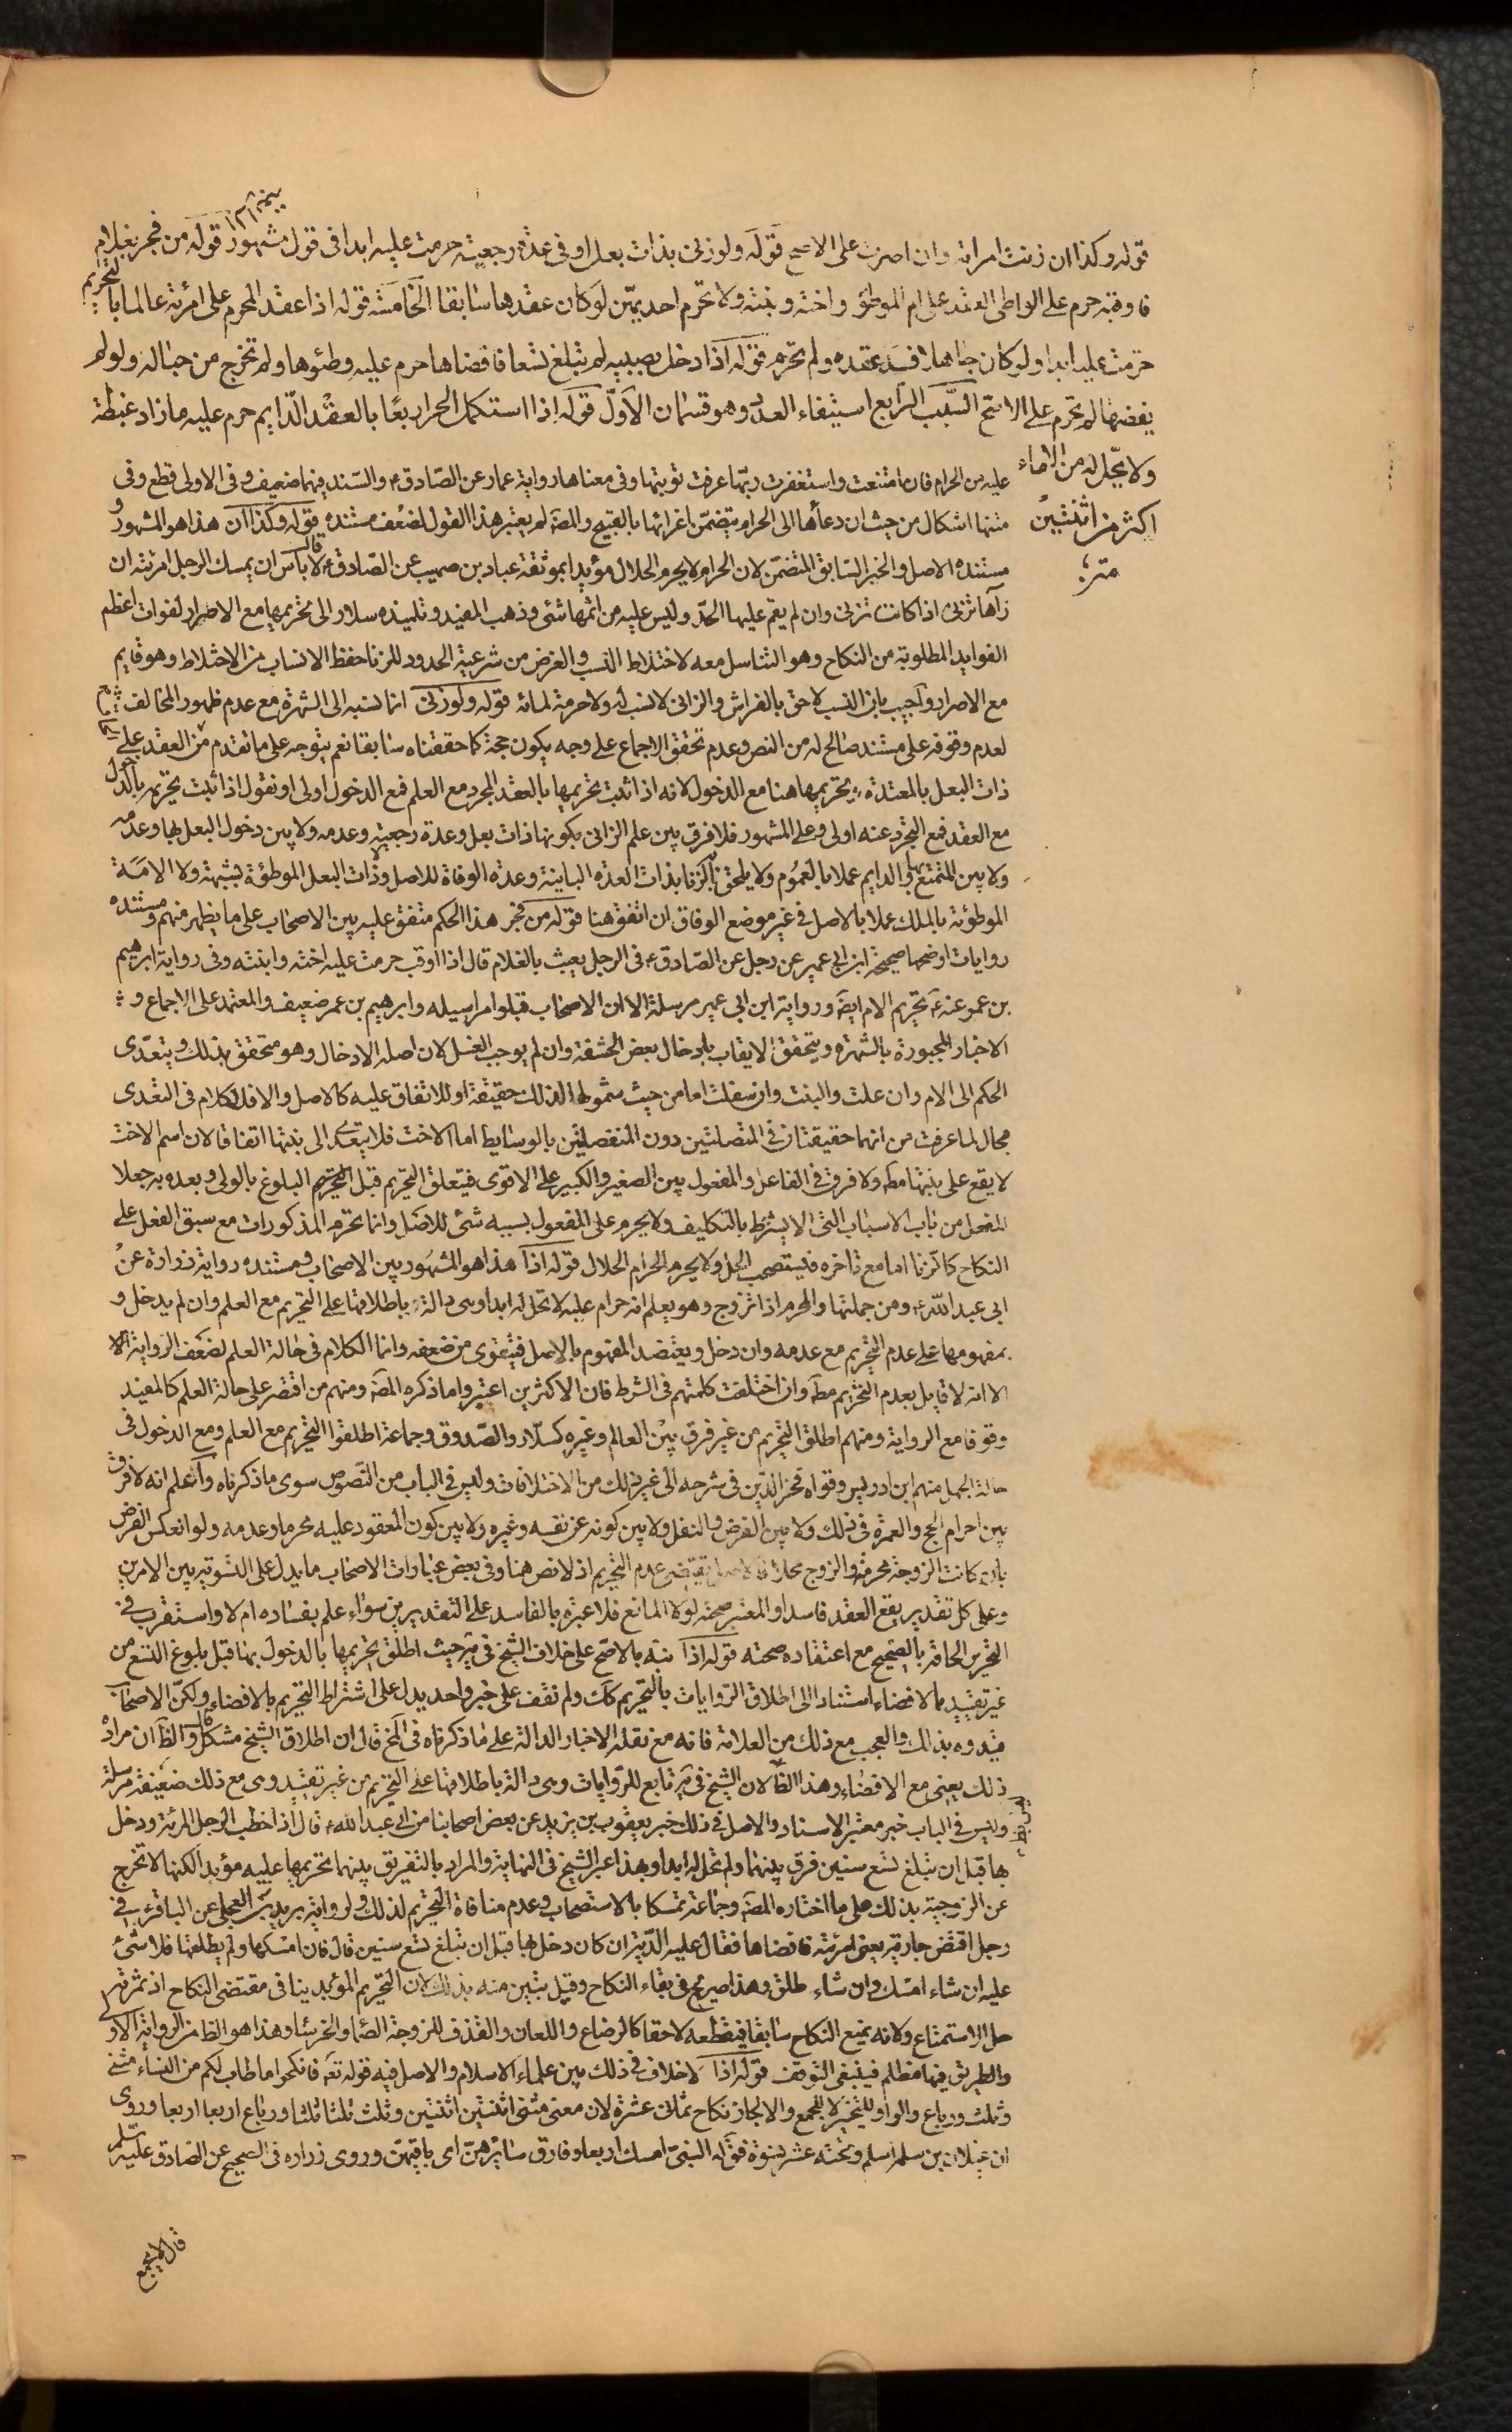 قوله وكذا ان زنت امراته وان اصرت على الاصح قوله ولو زنى بذات بعل او فى عدة رجعية حرمت عليه ابدا فى قول مشهور قوله من فجر بغلام
فاوقبه حرم على الواطى العقد على ام الموطؤ واخته وبنته ولا تحرم احديهن لو كان عقدها سابقا الخامسة قوله اذا عقد المحرم على امرئة عالما بالتحريم
حرمت عليه ابدا ولو كان جاهلا فسد عقده ولم تحرم قوله اذا دخل بصبية لم تبلغ تسعا فافضاها حرم عليه وطئوها ولم تخرج من حباله ولو لم
يفضها لم تحرم على الاصح السبب الرابع استيفاء العدد وهو قسمان الاول قوله اذا استكمل الحر اربعا بالعقد الدايم حرم عليه ما زاد غبطة
ولا يحل له من الاماء
اكثر من اثنتين
عليه من الحرام فان امتنعت واستغفرت ربها عرفت توبتها وفى معناها رواية عمار عن الصادق ع والسند فيهما ضعيف وفى الاولى قطع وفى
متنها اشكال من حيث ان دعاها الى الحرام يتضمن اغرائها بالقبيح والمصَ لم يعتبر هذا القول لضعف مستنده قوله وكذا ان هذا هو المشهور و
مستنده الاصل والخبر السابق المتضمن لان الحرام لا يحرم الحلال مؤيدا بموثقة عباد بن صهيب عن الصادق ع قال لا باس ان يمسك الرجل امرئته ان
رآها تزنى اذا كانت تزنى وان لم يقم عليها الحد وليس عليه من اثمها شئ وذهب المفيد وتلميذه سلار الى تحريمها مع الاصرار لفوات اعظم
الفوايد المطلوبة من النكاح وهو التناسل معه لاختلاط النسب والغرض من شرعية الحدود للزنا حفظ الانساب من الاختلاط وهو قايم
مع الاصرار واجيب بان النسب لاحق بالفراش والزانى لا نسب له ولا حرمة لمائه قوله ولو زنى انما نسبه الى الشهرة مع عدم ظهور المخالف
لعدم وقوفه على مستند صالح له من النص وعدم تحقق الاجماع على وجه يكون حجة كما حققناه سابقا نعم يتوجه على ما تقدم من العقد على
ذات البعل بالمعتدة تحريمها هنا مع الدخول لانه اذا ثبت تحريمها بالعقد المجرد مع العلم فمع الدخول اولى او نقول اذا ثبت تحريمه بالدخول
مع العقد فمع التجرد عنه اولى وعلى المشهور فلا فرق بين علم الزانى بكونها ذات بعل وعدة رجعية وعدمه ولا بين دخول البعل بها وعدمه
ولا بين المتمتع بها والدايم عملا بالعموم ولا يلحق بالزنا بذات العدة الباينة وعدة الوفاة للاصل وذات البعل الموطؤة بشبهة ولا الامة
الموطؤئة بالملك عملا بالاصل فى غير موضع الوفاق ان اتفق هنا قوله من فجر هذا الحكم متفق عليه بين الاصحاب على ما يظهر منهم ومستنده
روايات اوضحها صحيحة ابن ابى عمير عن رجل عن الصادق ع فى الرجل يعبث بالغلام قال اذا اوقب حرمت عليه اخته وابنته وفى رواية ابرهيم
بن عمر عنه ع تحريم الام ايضَ ورواية ابن ابى عمير مرسلة الا ان الاصحاب قبلوا مراسيله وابرهيم بن عمر ضعيف والمعتمد على الاجماع و
الاخبار المجبورة بالشهرة ويتحقق الايقاب بادخال بعض الحشفة وان لم يوجب الغسل لان اصله الادخال وهو متحقق بذلك ويتعدى
الحكم الى الام وان علت والبنت وان سفلت اما من حيث شمولها لذلك حقيقة او للاتفاق عليه كالاصل والا فللكلام فى التعدى
مجال لما عرفت من انهما حقيقتان فى المتصلتين دون المنفصلتين بالوسايط اما الاخت فلا يتعدى الى بنتها اتفاقا لان اسم الاخت
لا يقع على بنتها مطَ ولا فرق فى الفاعل والمفعول بين الصغير والكبير على الاقوى فيتعلق التحريم قبل البلوغ بالولى وبعده به جعلا
للفعل من باب الاسباب التى لا يشترط بالتكليف ولا يحرم على المفعول بسببه شئ للاصل وانما تحرم المذكورات مع سبق الفعل على
النكاح كالزنا اما مع تاخره فيستصحب الحل ولا يحرم الحرام الحلال قوله اذا هذا هو المشهور بين الاصحاب ومستنده رواية زرارة عن
ابى عبد الله ع ومن جملتها والمحرم اذا تزوج وهو يعلم انه حرام عليه لا تحل له ابدا وهى دالة باطلاقها على التحريم مع العلم وان لم يدخل و
بمفهومها على عدم التحريم مع عدمه وان دخل ويعتضد المفهوم بالاصل فيتقوى من ضعفه وانما الكلام فى حالة العلم لضعف الرواية الا
الا انه لا قايل بعدم التحريم مطَ وان اختلفت كلمتهم فى الشرط فان الاكثرين اعتبروا ما ذكره المصَ ومنهم من اقتصر على حالة العلم كالمفيد
وقوفا مع الرواية ومنهم اطلق التحريم من غير فرق بين العالم وغيره كسلار والصدوق وجماعة اطلقوا التحريم مع العلم ومع الدخول فى
حالة الجهل منهم ابن ادريس وقواه فخر الدين فى شرحه الى غير ذلك من الاختلافات وليس فى الباب من النصوص سوى ما ذكرناه واعلم انه لا فرق
بين احرام الحج والعمرة فى ذلك ولا بين الفرض والنفل ولا بين كونه عن نفسه وغيره ولا بين كون المعقود عليه محرما وعدمه ولو انعكس الفرض
بان كانت الزوجة محرمة والزوج محلا فالاصل يقتضى عدم التحريم اذ لا نص هنا وفى بعض عبارات الاصحاب ما يدل على التسوية بين الامرين
وعلى كل تقدير يقع العقد فاسدا والمعتبر صحته لولا المانع فلا عبرة بالفاسد على التقديرين سواء علم بفساده ام لا واستقرب فى
التحرير الحاقه بالصحيح مع اعتقاده صحته قوله اذا نبه بالاصح على خلاف الشيخ فى يَه حيث اطلق تحريمها بالدخول بها قبل بلوغ التسع من
غير تقييد بالافضاء استنادا الى اطلاق الروايات بالتحريم كك ولم نقف على خبر واحد يدل على اشتراط التحريم بالافضاء ولكن الاصحاب
قيدوه بذلك والعجب مع ذلك من العلامة فانه مع نقله الاخبار الدالة على ما ذكرناه فى المخ قال ان اطلاق الشيخ مشكل قال والظَ ان مراده
ذلك يعنى مع الافضاء وهذا الظَ لان الشيخ فى يَه تابع للروايات وهى دالة باطلاقها على التحريم من غير تقييد وهى مع ذلك ضعيفة مرسلة
وليس فى الباب خبر معتبر الاسناد والاصل فى ذلك خبر يعقوب بن يزيد عن بعض اصحابنا عن ابى عبد الله ع قال اذا خطب الرجل المرئة ودخل
بها قبل ان تبلغ تسع سنين فرق بينهما ولم تحل له ابدا وبهذا عبر الشيخ فى النهاية والمراد بالتفريق بينهما تحريمها عليه مؤبدا لكنها لا تخرج
عن الزوجية بذلك على ما اختاره المصَ وجماعة تمسكا بالاستصحاب وعدم منافاة التحريم لذلك ولرواية بريد العجلى عن الباقر ع فى
رجل افتض جارية يعنى امرئته فافضاها فقال عليه الدية ان كان دخل بها قبل ان تبلغ تسع سنين قال فان امسكها ولم يطلقها فلا شئ
عليه ان شاء امسك وان شاء طلق وهذا صريح فى بقاء النكاح وقيل تبين منه بذلك لان التحريم المؤبد ينافى مقتضى النكاح اذ ثمرته
حل الاستمتاع ولانه يمنع النكاح سابقا فيقطعه لاحقا كالرضاع واللعان والقذف للزوجة الصماء والخرساء وهذا هو الظَ من الرواية الاولى
والطريق فيها مظلم فينبغى التوقف قوله اذا لا خلاف فى ذلك بين علماء الاسلام والاصل فيه قوله تعَ فانكحوا ما طاب لكم من النساء مثنى
وثلث ورباع والواو للتخيير لا للجمع والا لجاز نكاح ثمانى عشرة لان معنى مثنى اثنتين اثنتين وثلث ثلثا ثلثا ورباع اربعا اربعا وروى
ان غيلان بن سلمة اسلم وتحته عشر نسوة فقال له النبى امسك اربعا وفارق سائرهن اى باقيهن وروى زرارة فى الصحيح عن الصادق عليه السلم
قال لا يجمع